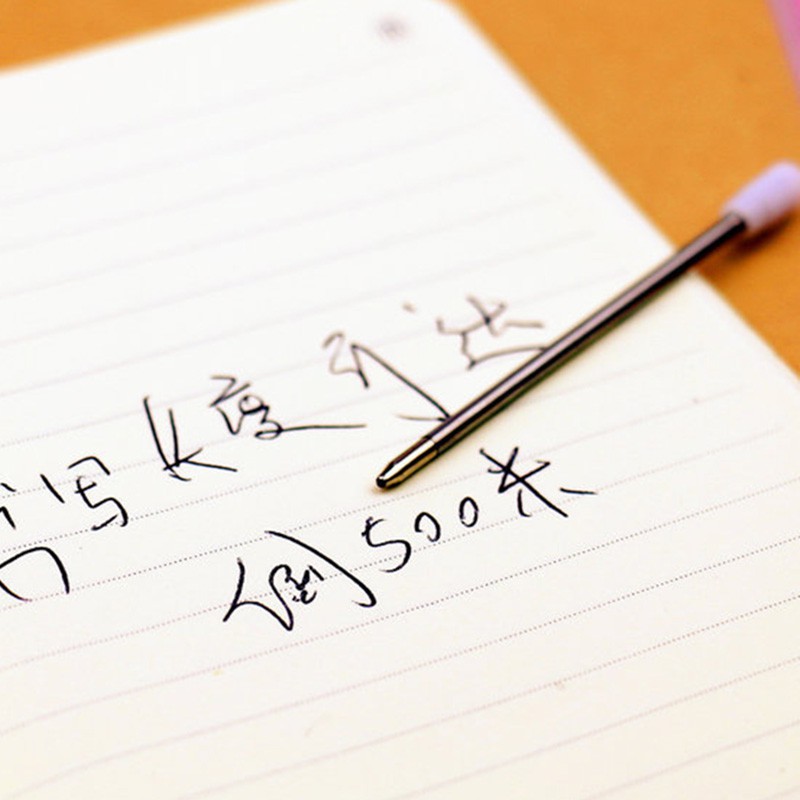 书写长度可达
到500米